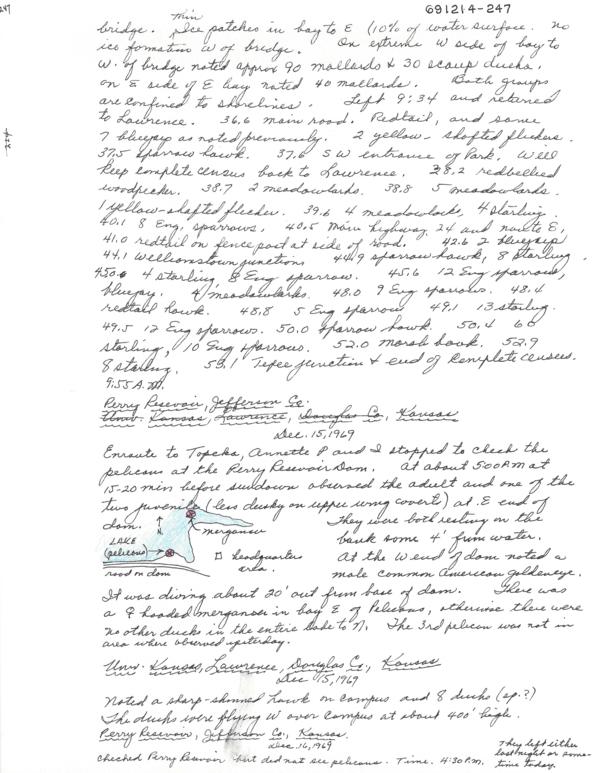 247
691214-247
min
bridge. Ice patches in bay to E (10% of water surface. no
ice formation W of bridge. On extreme W side of bay to
W. of bridge noted approx 90 mallards & 30 scaup ducks.
on E side of E bay noted 40 mallards. Both groups
are confined to shorelines. Left 9:34 and returned
to Lawrence. 36.6 main road. Redtail, and same
7 bluejays as noted previously. 2 yellow-shafted flickers.
37.5 sparrow hawk. 37.6 SW entrance of Park. Will
keep complete census back to Lawrence. 38.2 redbellied
woodpecker. 38.7 2 meadowlarks. 38.8 5 meadowlarks.
1 yellow-shafted flicker. 39.6 4 meadowlarks, 4 starling.
40.1 8 Eng. sparrows. 40.5 Main highway 24 and route E,
41.0 redtail on fence post at side of road. 42.6 2 bluejays
44.1 Williamstown junction 44.9 sparrow hawk, 8 starling.
45.0 4 starling, 8 Eng sparrow. 45.6 12 Eng sparrows,
bluejay. 4 meadowlarks. 48.0 9 Eng sparrows. 48.4
redtail hawk. 48.8 5 Eng sparrow 49.1 13 starling.
49.5 12 Eng sparrows. 50.0 sparrow hawk. 50.4 60
starling, 10 Eng sparrows. 52.0 Marsh hawk. 52.9
8 starling. 53.1 Tepee junction & end of complete census.
9:55 A.M.
Perry Resevoir, Jefferson Co.
Univ. Kansas, Lawrence, Douglas Co, Kansas
Dec. 15, 1969
Enroute to Topeka, Annette P and I stopped to check the
pelicans at the Perry Resevoir Dam. At about 500 PM at
15-20 min before sundown observed the adult and one of the
two juvenile (less dusky on upper wing coverts) at E end of
dam. They were both resting on the
bank some 4' from water.
At the W end of dam noted a
male common American goldeneye.
N
merganser
LAKE
(pelicans)
headquarters
area.
road on dam
It was diving about 20' out from base of dam. There was
a ♀ hooded merganser in bay E of Pelicans, otherwise there were
no other ducks in the entire lake to N. The 3rd pelican was not in
area where observed yesterday.
Univ. Kansas, Lawrence, Douglas Co., Kansas
Dec 15, 1969
Noted a sharp-shinned hawk on campus and 8 ducks (sp.?)
The ducks were flying W over campus at about 400' high.
Perry Resevoir, Jefferson Co., Kansas.
Dec. 16, 1969
Checked Perry Resevoir but did not see pelicans. Time. 4:30 P.M.
They left either
last night or some-
time today.